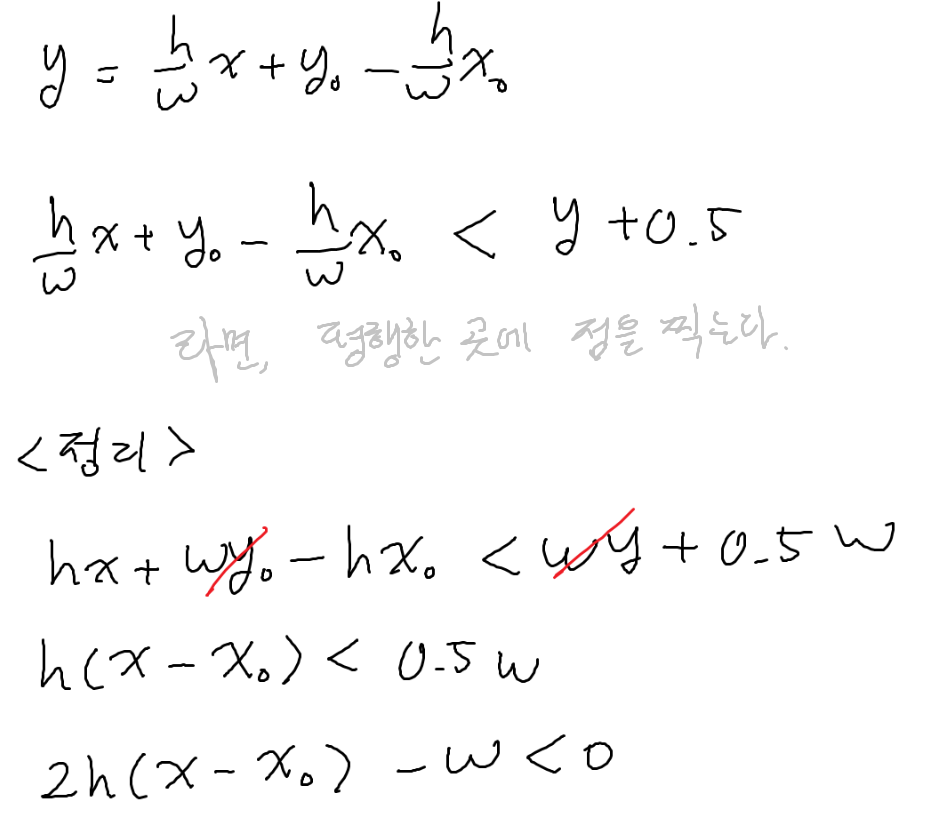 y = h/w x + y₀ - h/w x₀
h/w x + y₀ - h/w x₀ < y + 0.5
라면, 평행한 곳에 점을 찍는다.
<정리>
hx + wy₀ - hx₀ < wy + 0.5w
h(x - x₀) < 0.5w
2h(x - x₀) - w < 0